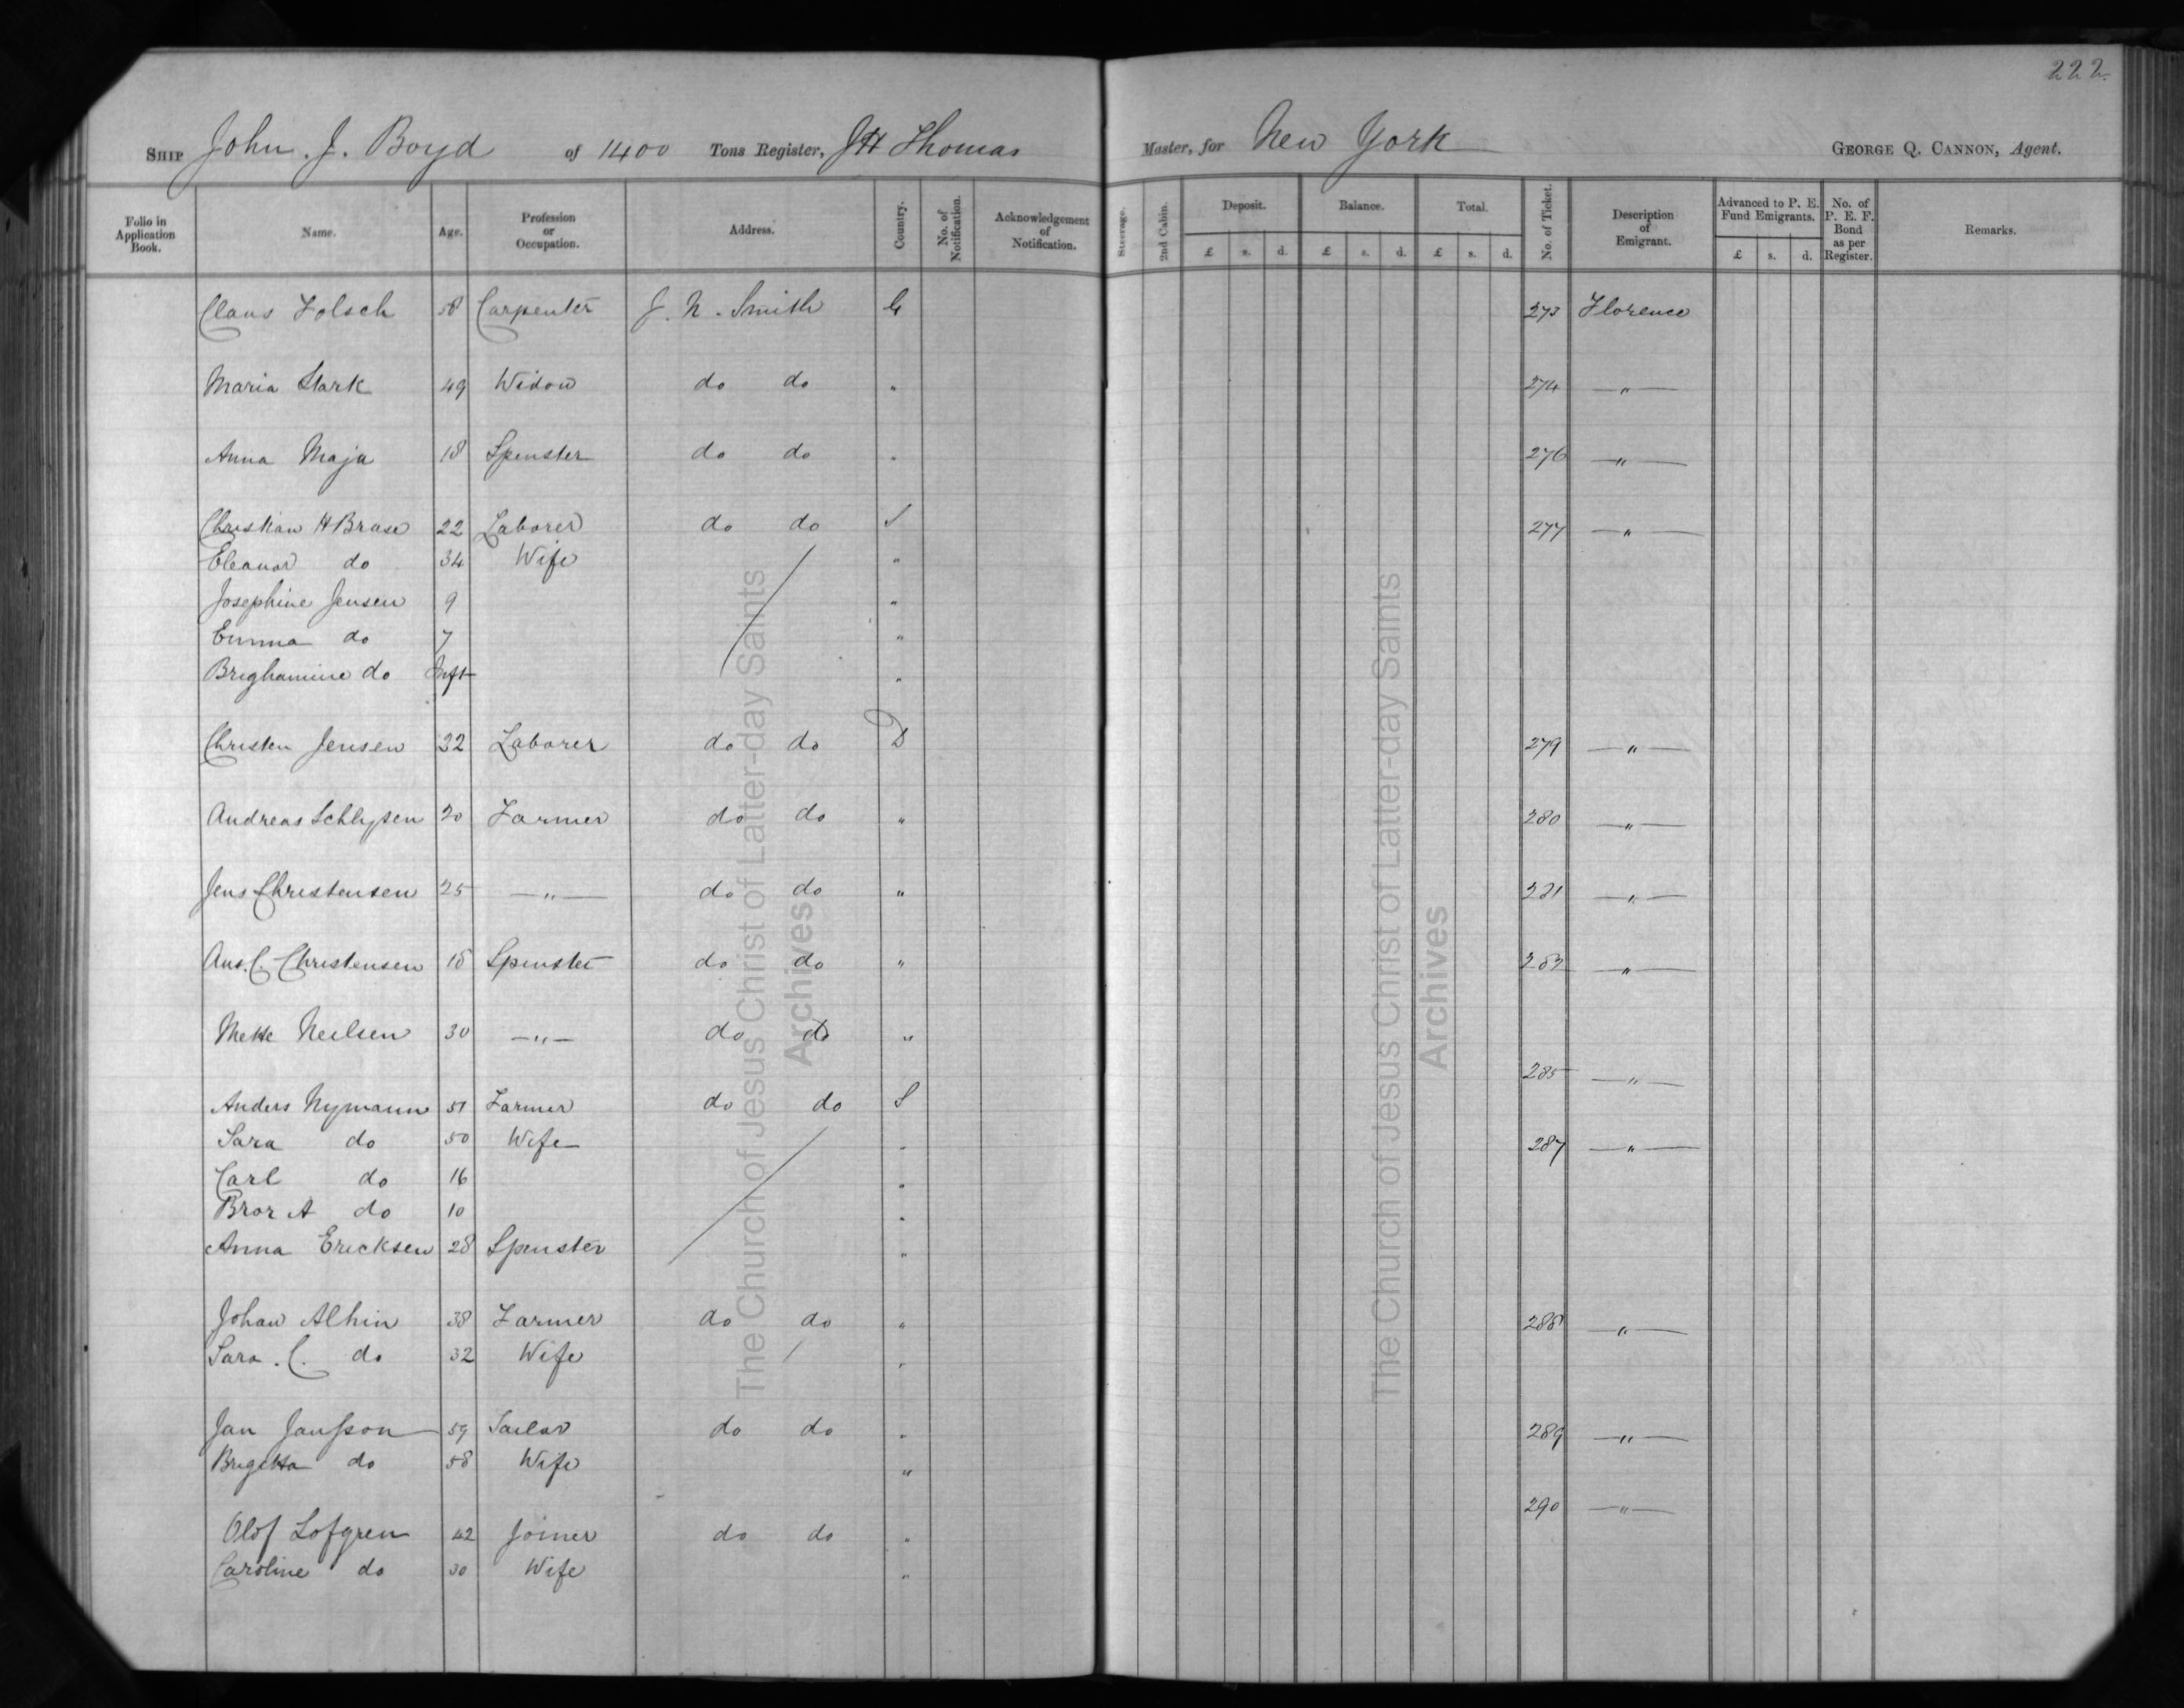 222.
SHIP John. J. Boyd of 1400 Tons Register, JH Thomas Master, for New York GEORGE Q. CANNON, Agent.
Folio in Application Book. Name. Age. Profession or Occupation. Address. Country. No. of Notification. Acknowledgement of Notification. Steerage. 2nd Cabin. Deposit. £ s. d. Balance. £ s. d. Total. £ s. d. No. of Ticket. Description of Emigrant. Advanced to P. E. Fund Emigrants. £ s. d. No. of P. E. F. Bond as per Register. Remarks.
Claus Folsch 58 Carpenter J. N. Smith G 273 Florence
Maria Stark 49 Widow do do " 274 — " —
Anna Maja 18 Spenster do do " 276 — " —
Christian H Brase 22 Laborer do do S 277 — " —
Eleanor do 34 Wife "
Josephine Jensen 9 "
Emma do 7 "
Brighamine do Inft "
Christen Jensen 32 Laborer do do D 279 — " —
Andreas 20 Farmer do do " 280 — " —
Jens Christensen 25 — " — do do " 281 — " —
C. Christensen 18 Spenster do do " 283 — " —
Mette Neilsen 30 — " — do do "
285 — " —
Anders Nymann 51 Farmer do do S
Sara do 50 Wife " 287 — " —
Carl do 16 "
Bror A do 10 "
Anna Ericksen 28 Spenster "
Johan Alhin 38 Farmer do do " 288 — " —
Sara. C. do 32 Wife "
Jan Jansson 59 Sailor do do " 289 — " —
Brigetta do 58 Wife "
290 — " —
Olof Lofgren 42 Joiner do do "
Caroline do 30 Wife "
The Church of Jesus Christ of Latter-day Saints
Archives
The Church of Jesus Christ of Latter-day Saints
Archives